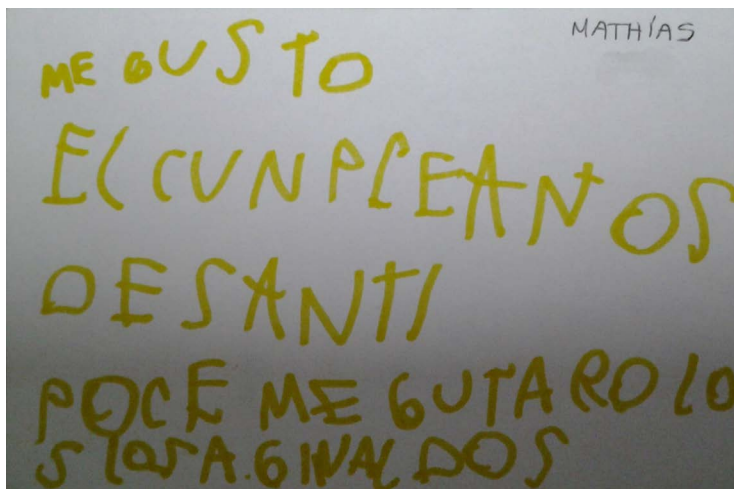 MATHÍAS
ME GUSTO
EL CUNPLEANOS
DESANTI
POCE ME GUTARO LO
S LOS A.GINALDOS